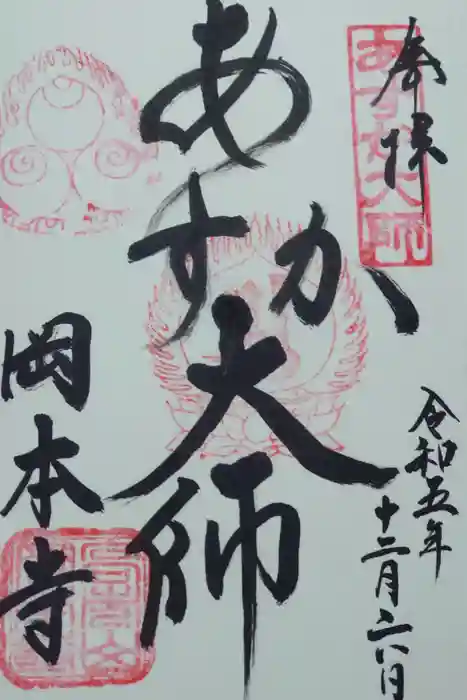 奉拝
あすか大師
あすか大師
岡本寺
令和五年
十二月二八日